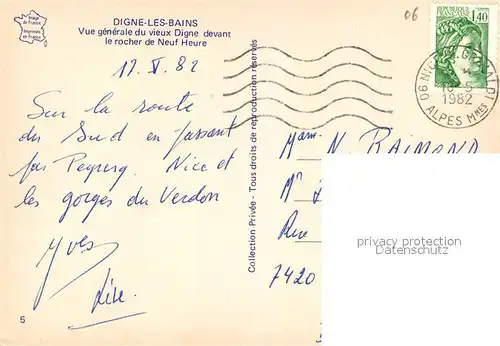 Image de France
Imprimée en France
DIGNE-LES-BAINS
Vue générale du vieux Digne devant
le rocher de Neuf Heure
17.V.82
Sur la route
du Sud en passant
par Nice et
les gorges du Verdon
Yves
5
Collection Privée - Tous droits de reproduction réservés
06
RÉPUBLIQUE FRANÇAISE
1,40
06 NICE
1982
ALPES MMES
Mam. N. RAIMOND
Mr
Rue
7420
privacy protection
Datenschutz